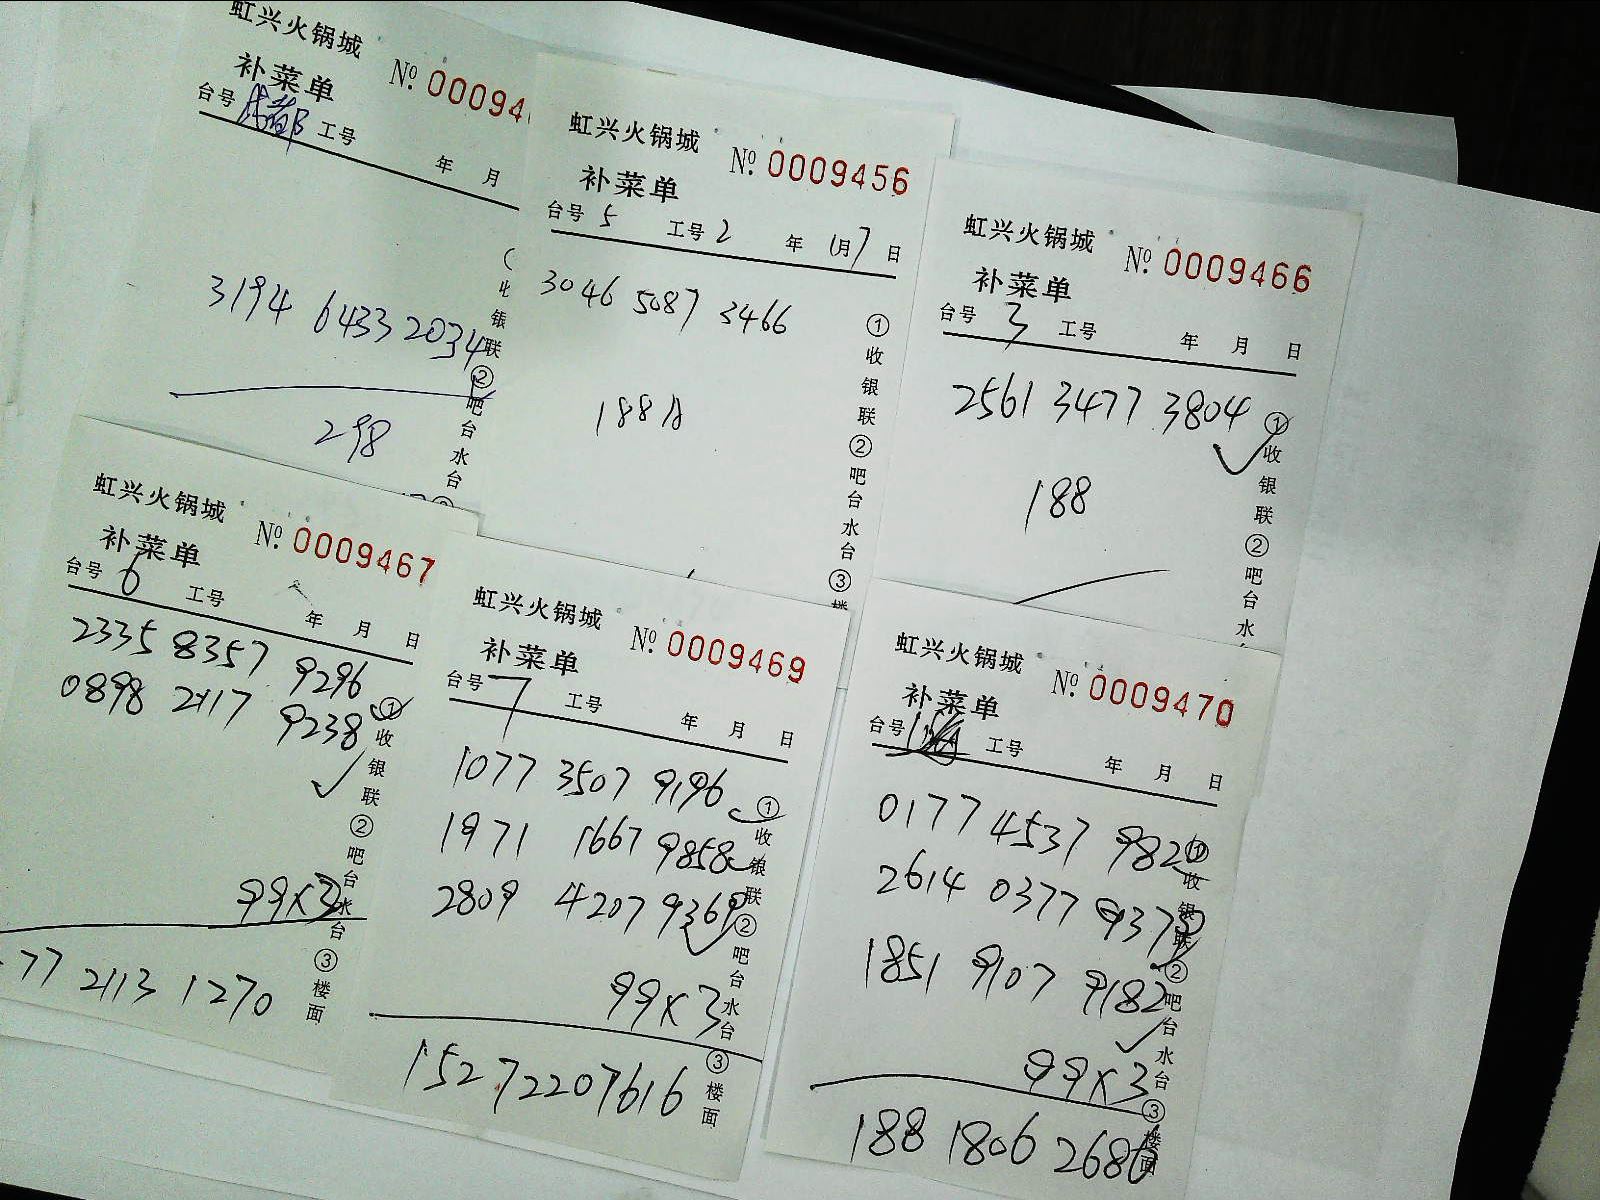 虹兴火锅城
补菜单
№ 00094
台号 成都 工号
年 月
3194 6433 2034
298
银
联
②
吧
台
水
台
虹兴火锅城
补菜单
№ 0009456
台号 5 工号 2 年 月 7 日
3046 5087 3466
188A
①
收
银
联
②
吧
台
水
台
③
楼
虹兴火锅城
补菜单
№ 0009466
台号 3 工号 年 月 日
2561 3477 3804
188
①
收
银
联
②
吧
台
水
虹兴火锅城
补菜单
№ 0009467
台号 6 工号 年 月 日
2335 8357 9296
0898 2117 9238
99×3
77 2113 1270
①
收
银
联
②
吧
台
水
台
③
楼
面
虹兴火锅城
补菜单
№ 0009469
台号 7 工号 年 月 日
1077 3507 9196
1971 1667 9858
2809 4207 9369
99×3
15272207616
①
收
银
联
②
吧
台
水
台
③
楼
面
虹兴火锅城
补菜单
№ 0009470
台号 工号 年 月 日
0177 4537 982
2614 0377 937
1851 9107 9182
99×3
188 1806 2686
①
收
银
联
②
吧
台
水
台
③
楼
面